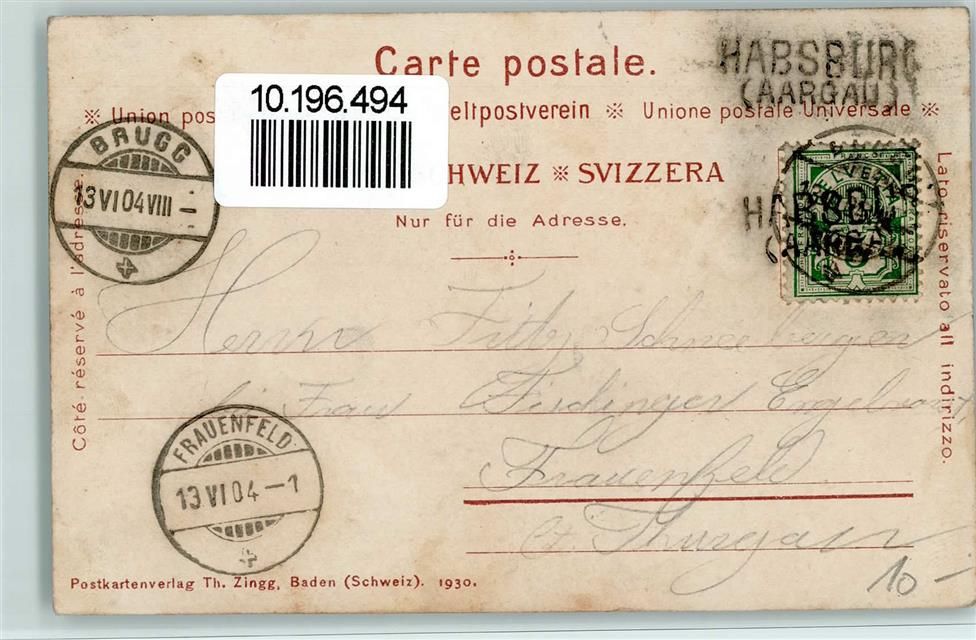 Carte postale.
HABSBURG
(AARGAU)
10.196.494
※ Union pos
eltpostverein ※ Unione postale Universale ※
BRUGG
13 VI 04 VIII –
HWEIZ ※ SVIZZERA
Nur für die Adresse.
HELVETIA
HABSBURG
(AARGAU)
Côté réservé à l'adresse.
Lato riservato all indirizzo.
Herrn Fritz Schneeberger
bei Frau
Frauenfeld
Ct. Thurgau
FRAUENFELD
13 VI 04 – 1
Postkartenverlag Th. Zingg, Baden (Schweiz). 1930.
10 –